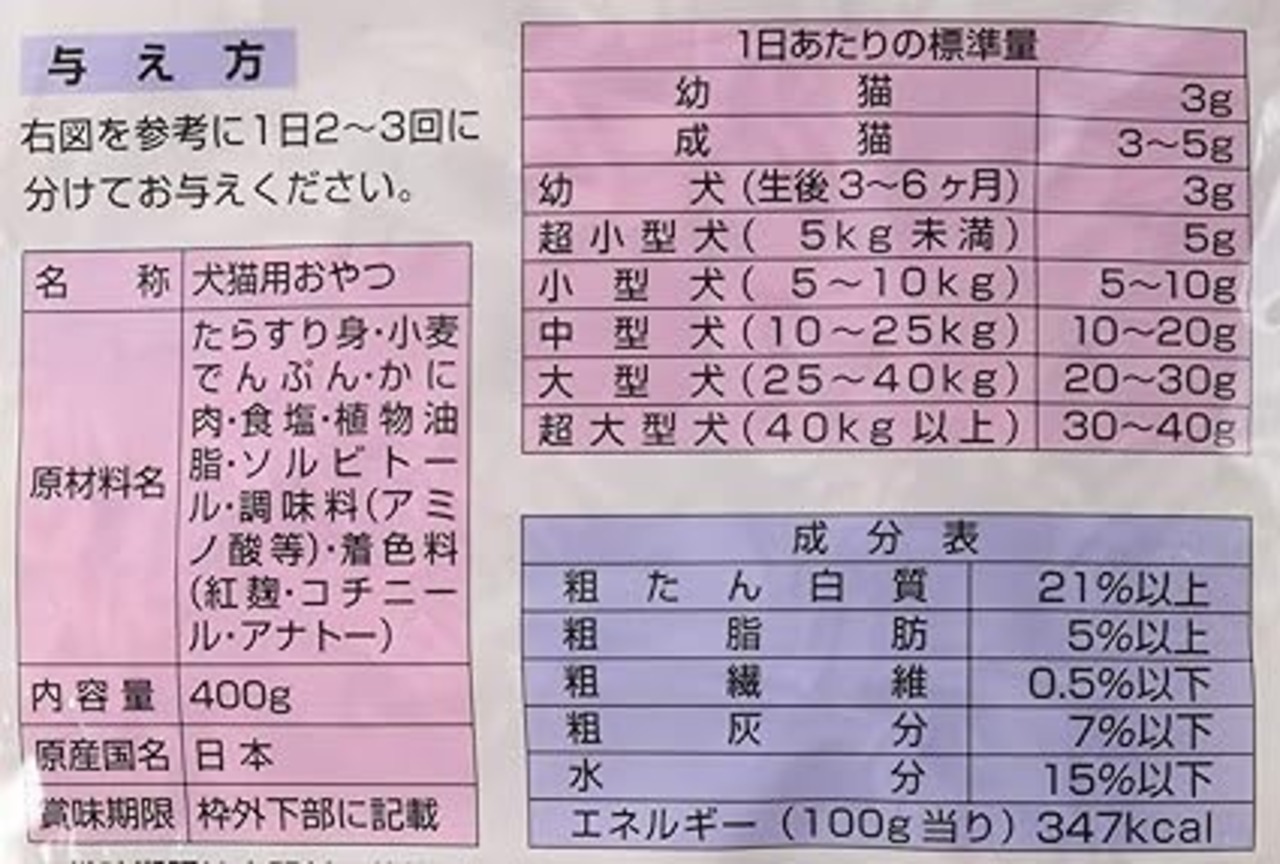 与え方
右図を参考に1日2〜3回に
分けてお与えください。
名称 犬猫用おやつ
原材料名 たらすり身・小麦
でんぷん・かに
肉・食塩・植物油
脂・ソルビトー
ル・調味料(アミ
ノ酸等)・着色料
(紅麹・コチニー
ル・アナトー)
内容量 400g
原産国名 日本
賞味期限 枠外下部に記載
1日あたりの標準量
幼猫 3g
成猫 3〜5g
幼犬(生後3〜6ヶ月) 3g
超小型犬(5kg未満) 5g
小型犬(5〜10kg) 5〜10g
中型犬(10〜25kg) 10〜20g
大型犬(25〜40kg) 20〜30g
超大型犬(40kg以上) 30〜40g
成分表
粗たん白質 21%以上
粗脂肪 5%以上
粗繊維 0.5%以下
粗灰分 7%以下
水分 15%以下
エネルギー(100g当り) 347kcal